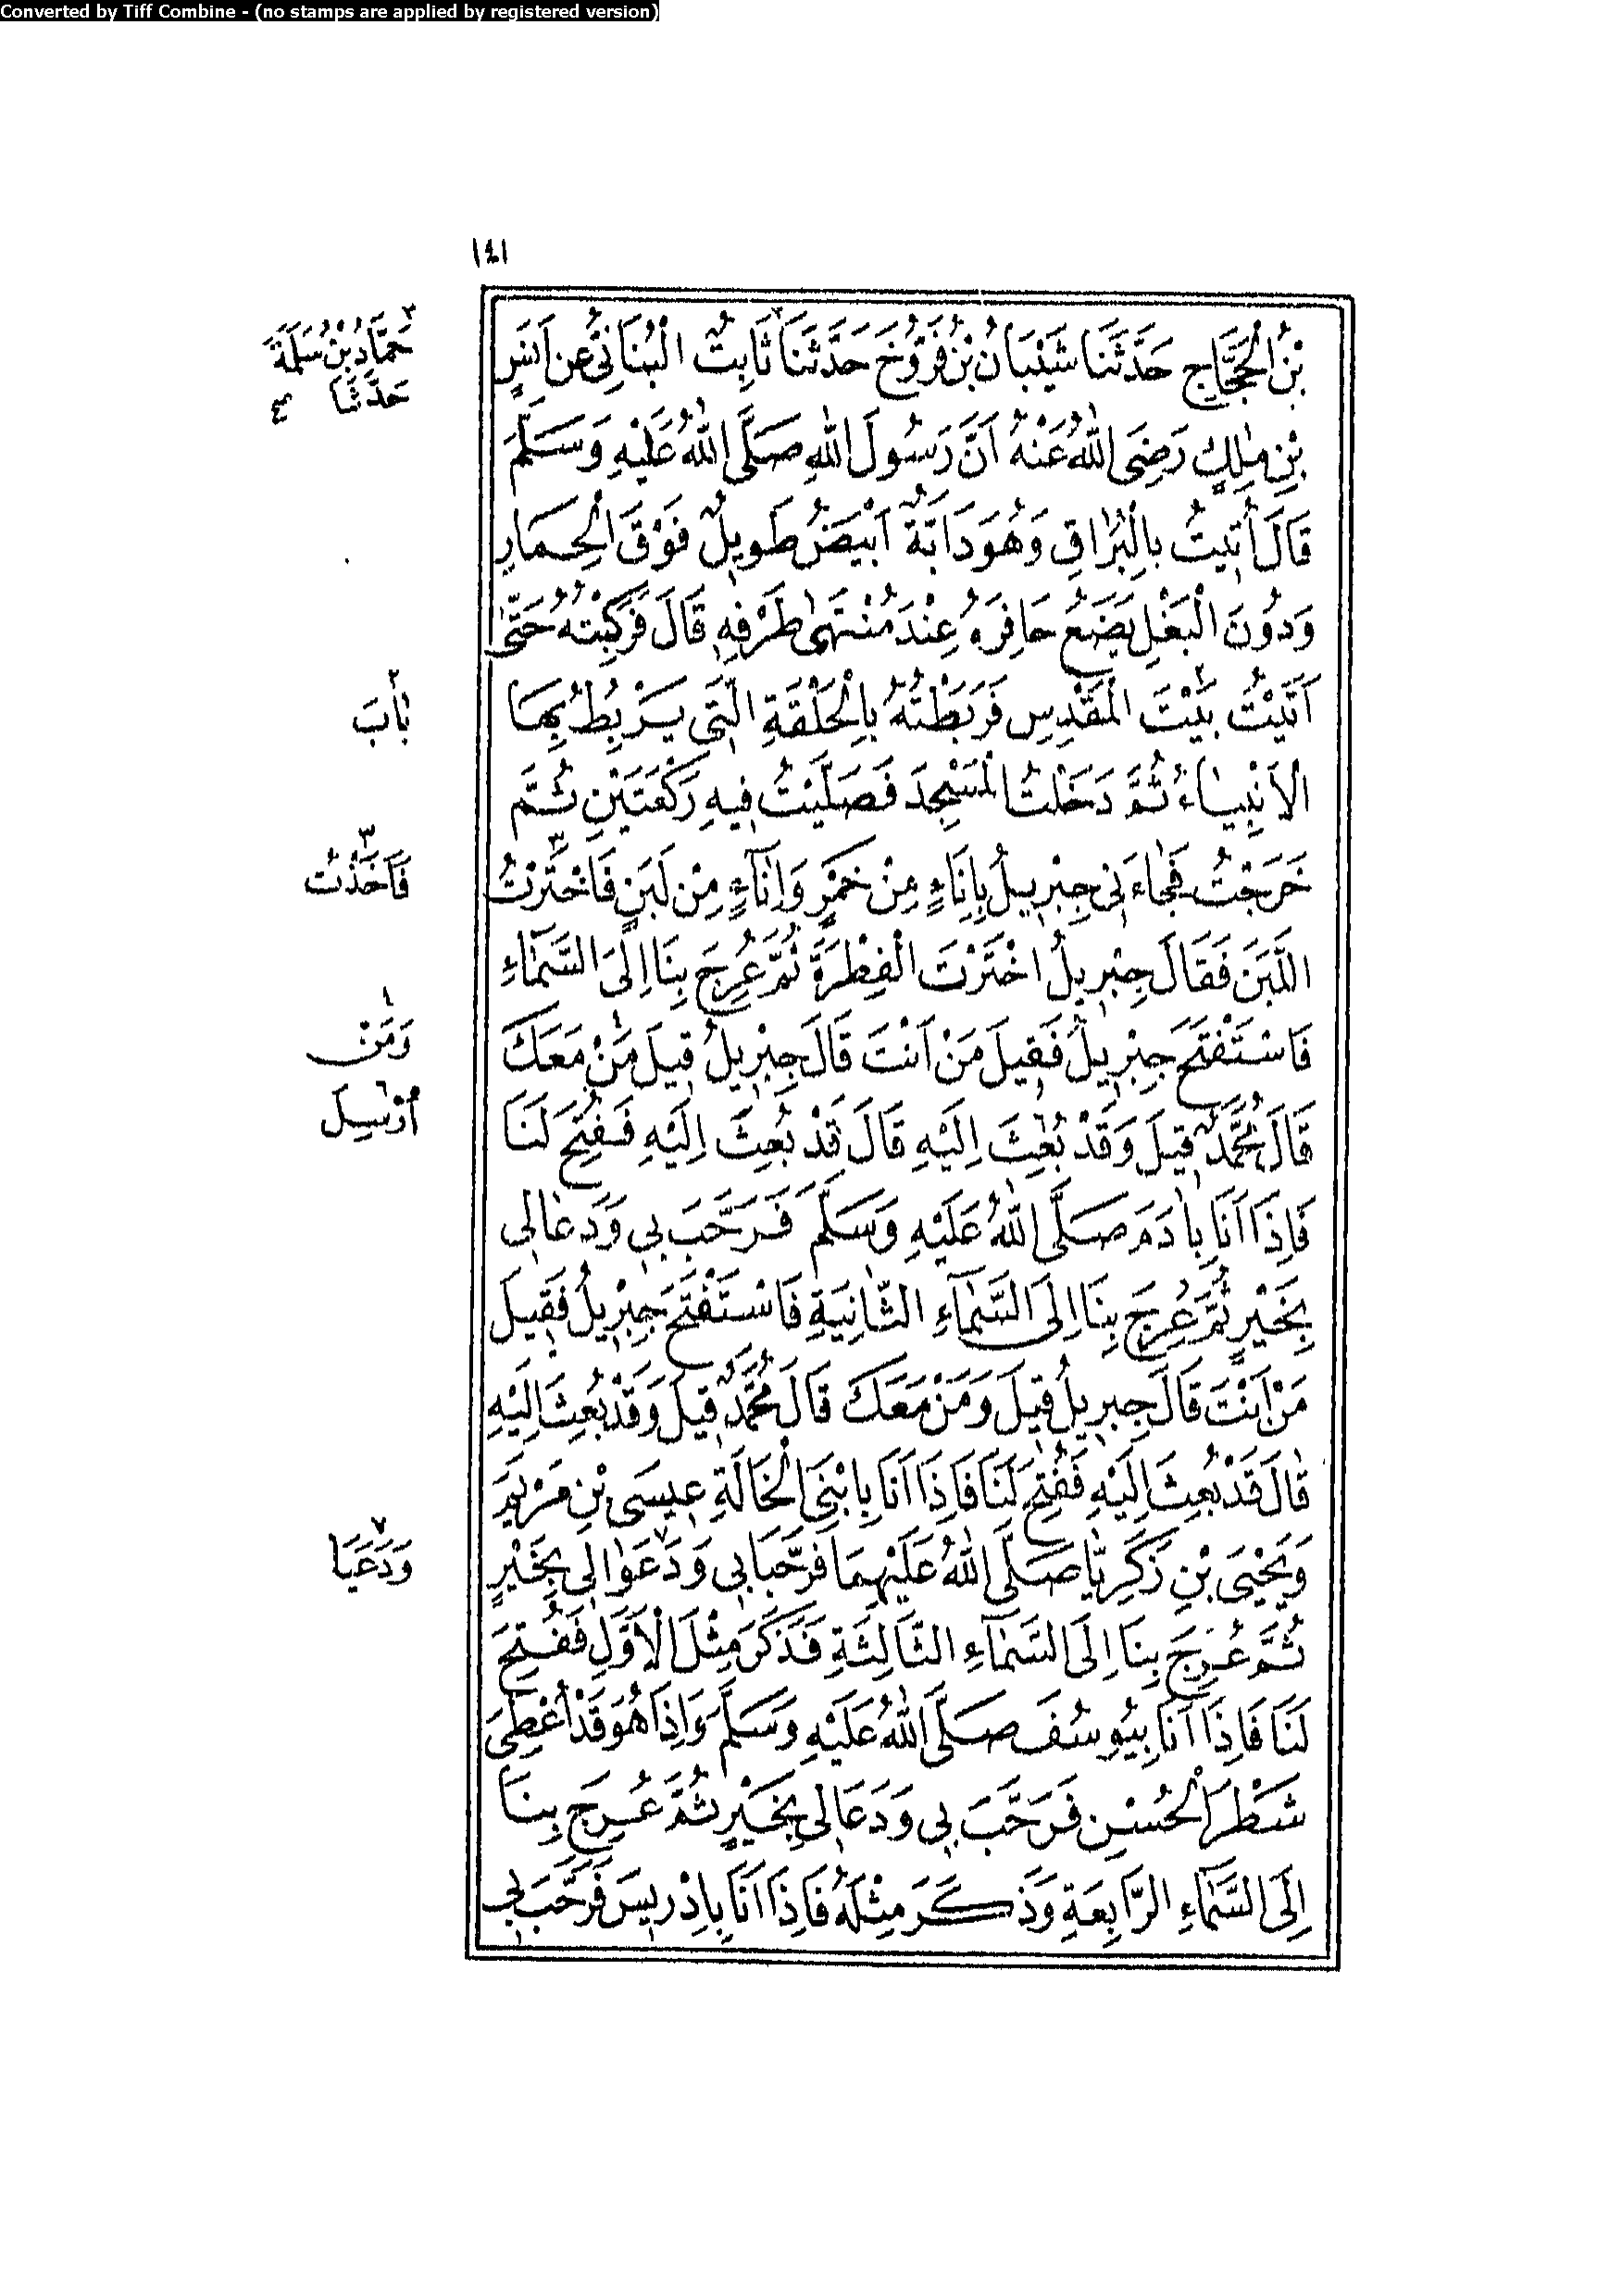 Converted by Tiff Combine - (no stamps are applied by registered version)
١٤١
بْنُ الْحَجَّاجِ حَدَّثَنَا شَيْبَانُ بْنُ فَرُّوخَ حَدَّثَنَا ثَابِتٌ الْبُنَانِيُّ عَنْ اَنَسِ
بْنِ مٰلِكٍ رَضِيَ اللّٰهُ عَنْهُ اَنَّ رَسُولَ اللّٰهِ صَلَّى اللّٰهُ عَلَيْهِ وَسَلَّمَ
قَالَ أُتِيتُ بِالْبُرَاقِ وَهُوَ دَابَّةٌ اَبْيَضُ طَوِيلٌ فَوْقَ الْحِمَارِ
وَدُونَ الْبَغْلِ يَضَعُ حَافِرَهُ عِنْدَ مُنْتَهٰى طَرْفِهِ قَالَ فَرَكِبْتُهُ حَتّٰى
اَتَيْتُ بَيْتَ الْمَقْدِسِ فَرَبَطْتُهُ بِالْحَلْقَةِ الَّتِي يَرْبِطُ بِهَا
الْاَنْبِيَاءُ ثُمَّ دَخَلْتُ الْمَسْجِدَ فَصَلَّيْتُ فِيهِ رَكْعَتَيْنِ ثُمَّ
خَرَجْتُ فَجَاءَنِي جِبْرِيلُ بِإِنَاءٍ مِنْ خَمْرٍ وَاِنَاءٍ مِنْ لَبَنٍ فَاخْتَرْتُ
اللَّبَنَ فَقَالَ جِبْرِيلُ اخْتَرْتَ الْفِطْرَةَ ثُمَّ عُرِجَ بِنَا اِلَى السَّمَاءِ
فَاسْتَفْتَحَ جِبْرِيلُ فَقِيلَ مَنْ اَنْتَ قَالَ جِبْرِيلُ قِيلَ مَنْ مَعَكَ
قَالَ مُحَمَّدٌ قِيلَ وَقَدْ بُعِثَ اِلَيْهِ قَالَ قَدْ بُعِثَ اِلَيْهِ فَفُتِحَ لَنَا
فَاِذَا اَنَا بِاٰدَمَ صَلَّى اللّٰهُ عَلَيْهِ وَسَلَّمَ فَرَحَّبَ بِي وَدَعَا لِي
بِخَيْرٍ ثُمَّ عُرِجَ بِنَا اِلَى السَّمَآءِ الثَّانِيَةِ فَاسْتَفْتَحَ جِبْرِيلُ فَقِيلَ
مَنْ اَنْتَ قَالَ جِبْرِيلُ قِيلَ وَمَنْ مَعَكَ قَالَ مُحَمَّدٌ قِيلَ وَقَدْ بُعِثَ اِلَيْهِ
قَالَ قَدْ بُعِثَ اِلَيْهِ فَفُتِحَ لَنَا فَاِذَا اَنَا بِابْنَيِ الْخَالَةِ عِيسَى بْنِ مَرْيَمَ
وَيَحْيَى بْنِ زَكَرِيَّا صَلَّى اللّٰهُ عَلَيْهِمَا فَرَحَّبَا بِي وَدَعَوَا لِي بِخَيْرٍ
ثُمَّ عُرِجَ بِنَا اِلَى السَّمَآءِ الثَّالِثَةِ فَذَكَرَ مِثْلَ الْاَوَّلِ فَفُتِحَ
لَنَا فَاِذَا اَنَا بِيُوسُفَ صَلَّى اللّٰهُ عَلَيْهِ وَسَلَّمَ وَاِذَا هُوَ قَدْ أُعْطِيَ
شَطْرَ الْحُسْنِ فَرَحَّبَ بِي وَدَعَا لِي بِخَيْرٍ ثُمَّ عُرِجَ بِنَا
اِلَى السَّمَآءِ الرَّابِعَةِ وَذَكَرَ مِثْلَهُ فَاِذَا اَنَا بِاِدْرِيسَ فَرَحَّبَ بِي
٢ حَمَّادُ بْنُ سَلَمَةَ
حَدَّثَنَا
بَابَ
٣ فَأَخَذْتُ
وَمَنْ
أُرْسِلَ
٧ وَدَعَيَا